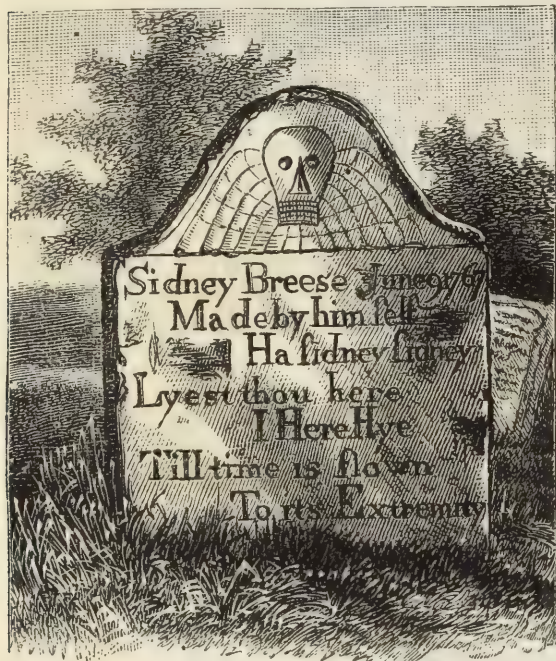 Sidney Breese June 9 1767
Made by him ſelf
Ha ſidney ſidney
Lyest thou here
I Here Hye
Till time is flown
To its Extremity